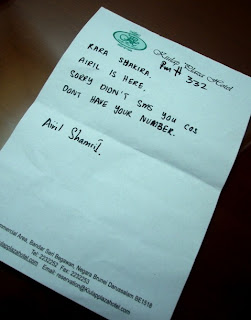 Kiulap Plaza Hotel
RARA SHAKIRA. Rm # 332
AIRIL IS HERE.
SORRY DIDN'T SMS YOU COS
DONT HAVE YOUR NUMBER.
Airil Shamil.
Commercial Area, Bandar Seri Begawan, Negara Brunei Darussalam BE1518
Tel: 2232252 Fax: 2232253
kiulapplazahotel.com Email: reservation@kiulapplazahotel.com